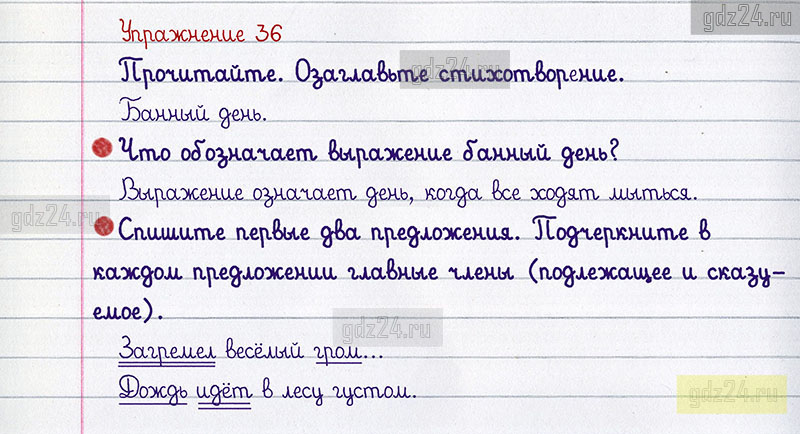 gdz24.ru
Упражнение 36
Прочитайте. Озаглавьте стихотворение.
gdz24.ru
Банный день.
Что обозначает выражение банный день?
Выражение означает день, когда все ходят мыться.
gdz24.ru
Спишите первые два предложения. Подчеркните в
каждом предложении главные члены (подлежащее и сказу-
емое).
gdz24.ru
Загремел весёлый гром...
Дождь идёт в лесу густом.
gdz24.ru